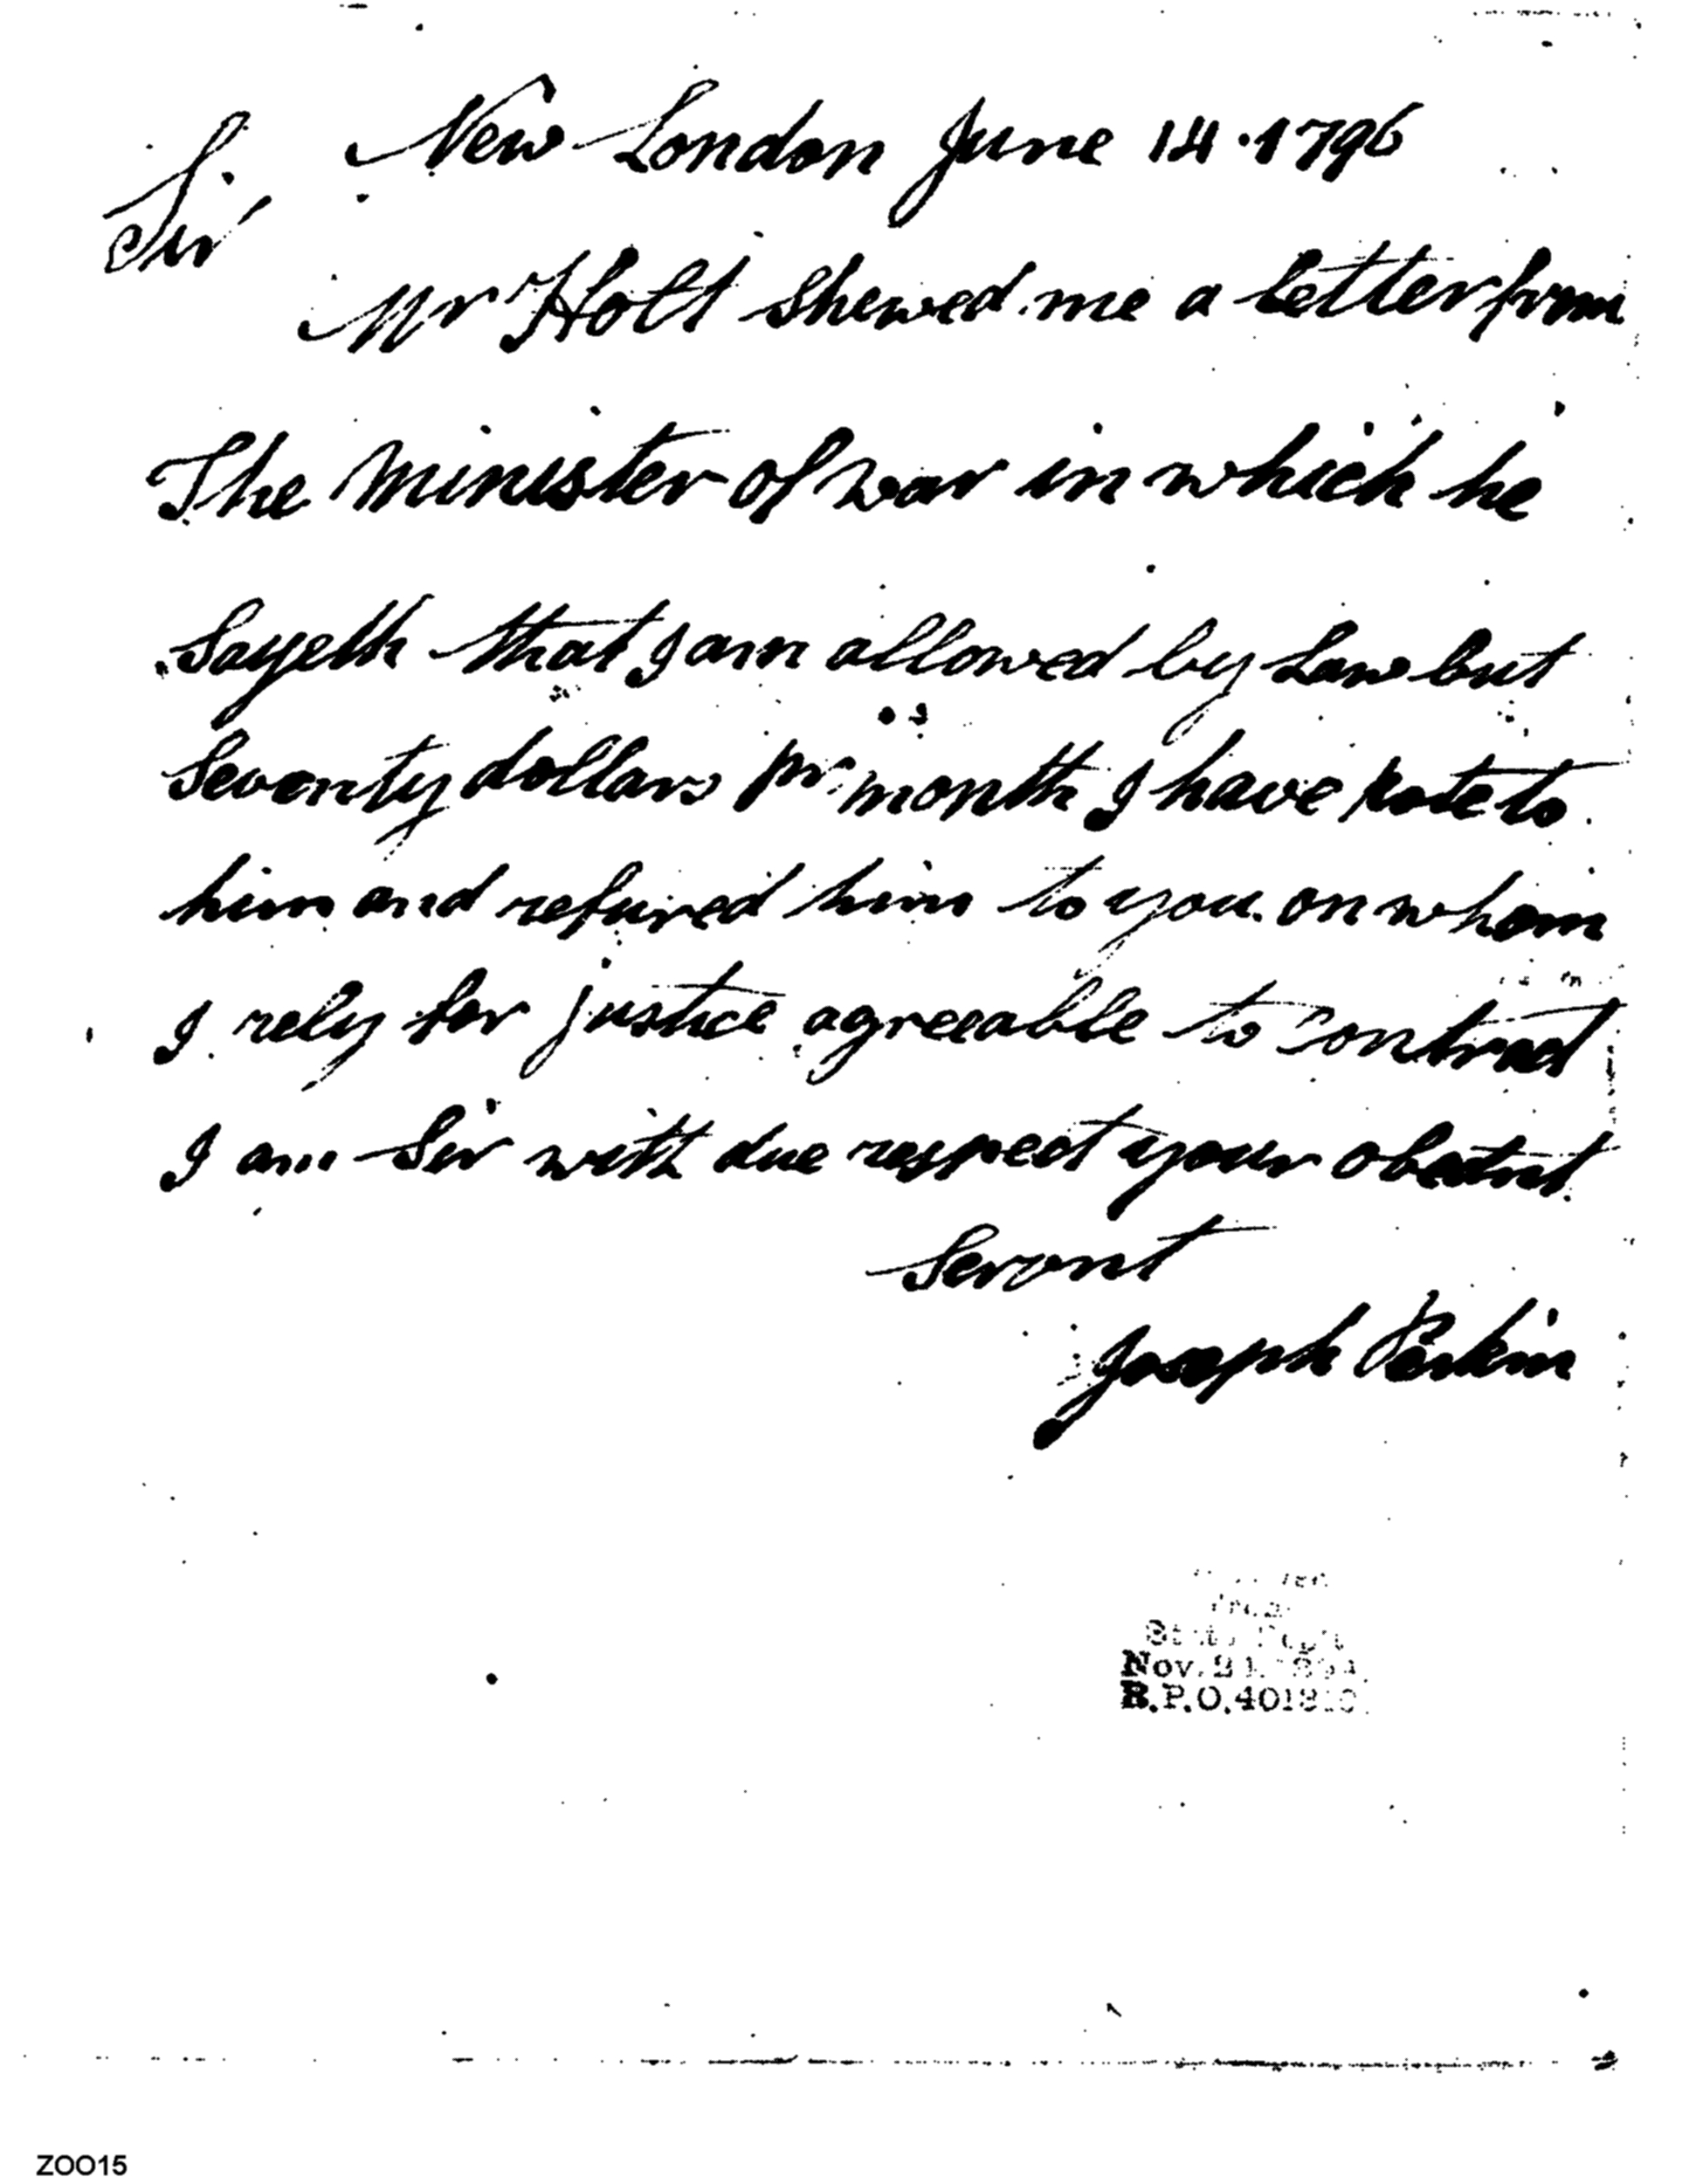 New London June 14 · 1796
Sir
Mr Holt Shewed me a Letter from
The Minister of war in which he
Sayeth that I am allowed by Law but
Seventy dollars pr month I have rote to
him and refured him to you on whom
I rely for justice agreeable to Contract
I am Sir with due respect your
Servnt
Joseph Perkin
Nov. 21.
B.P.O. 401
ZOO15